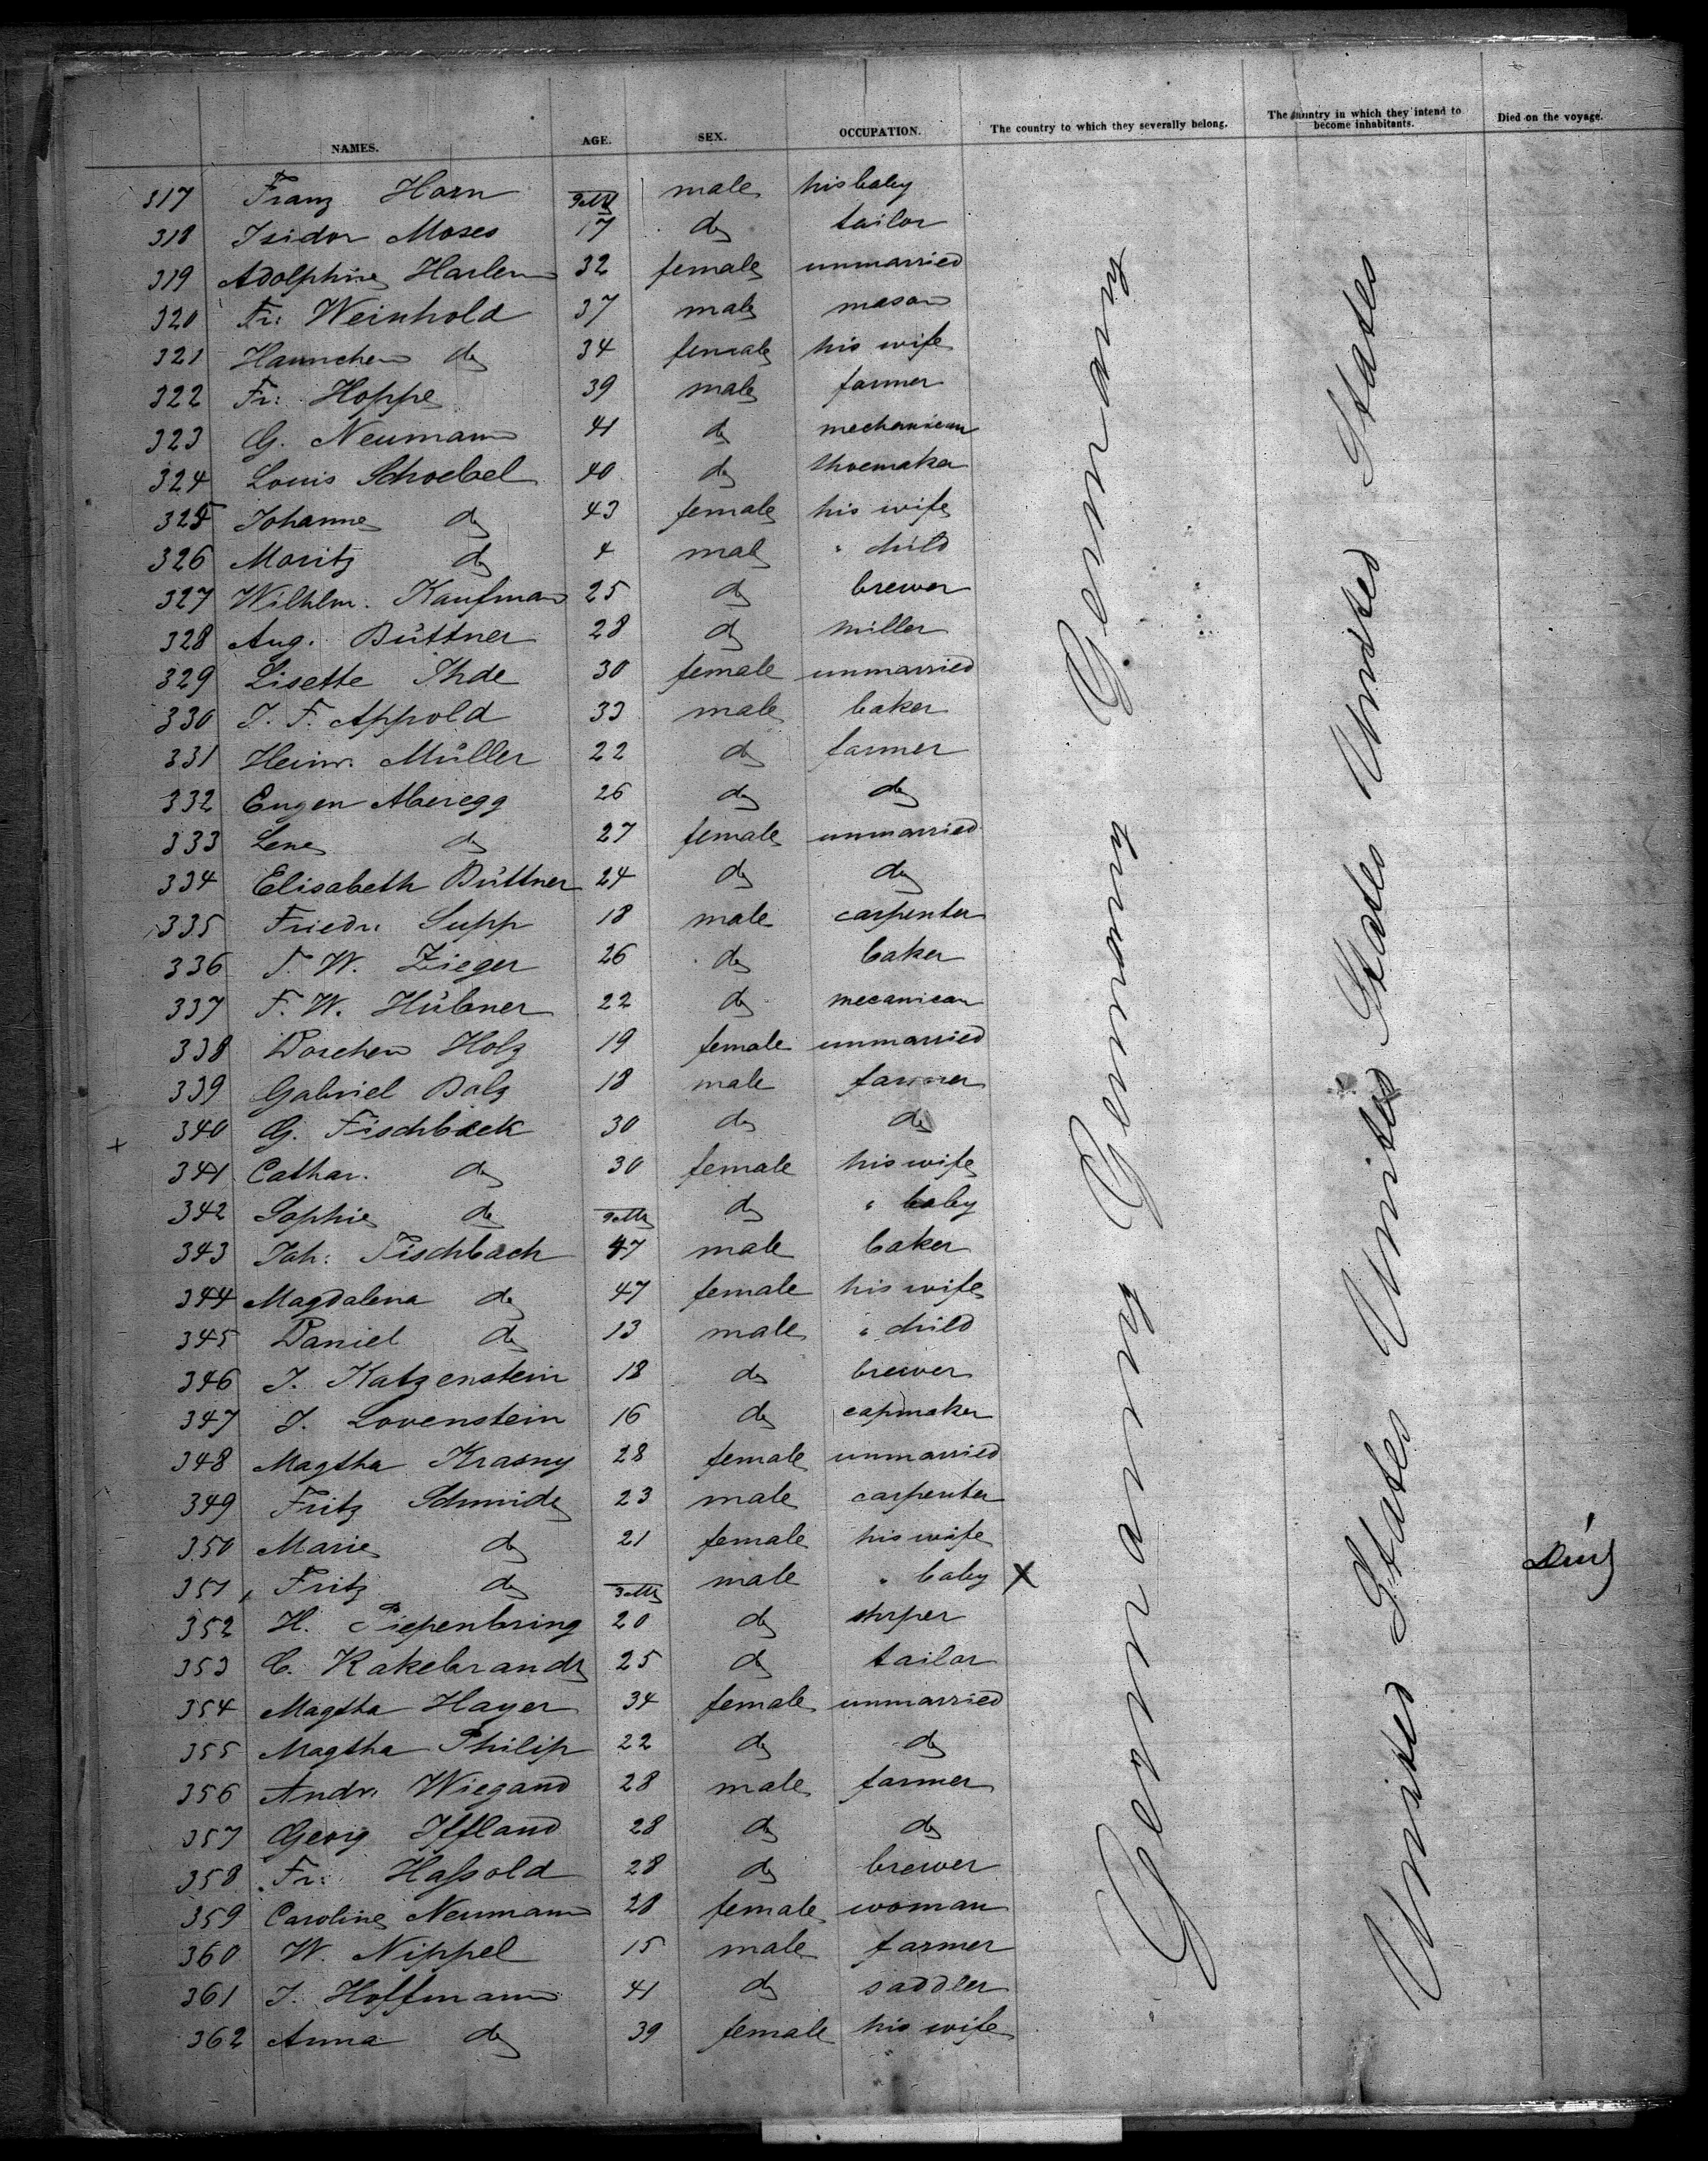 NAMES. AGE. SEX. OCCUPATION. The country to which they severally belong. The country in which they intend to become inhabitants. Died on the voyage.
317 Franz Horn male his baby
318 Isidor Moses 17 do tailor
319 Adolphine Harlem 32 female unmarried
320 Fr: Weinhold 37 male mason
321 Hannchen do 34 female his wife
322 Fr: Hoppe 39 male farmer
323 G. Neumann 41 do mechanican
324 Louis Schoebel 40 do shoemaker
325 Johanne do 43 female his wife
326 Moritz do 4 male " child
327 Wilhlm. Kaufman 25 do brewer
328 Aug. Büttner 28 do miller
329 Lisette Ihde 30 female unmarried
330 J. F. Appold 33 male baker
331 Heinr. Müller 22 do farmer
332 Eugen Aberegg 26 do do
333 Lene do 27 female unmarried
334 Elisabeth Büttner 24 do do
335 Friedr: Supp 18 male carpenter
336 F. W. Zieger 26 do baker
337 F. W. Hübner 22 do mecanican
338 Dorchen Holz 19 female unmarried
339 Gabriel Balz 18 male farmer
+ 340 G. Fischback 30 do do
341 Cathar. do 30 female his wife
342 Sophie do do " baby
343 Joh: Fischbach 47 male baker
344 Magdalena do 47 female his wife
345 Daniel do 13 male " child
346 J. Katzenstein 18 do brewer
347 J. Lovenstein 16 do capmaker
348 Magtha Krasny 28 female unmarried
349 Fritz Schmidt 23 male carpenter
350 Marie do 21 female his wife
351 Fritz do male " baby X
352 H. Piepenbring 20 do
353 C. Kakebrandt 25 do tailor
354 Magtha Hayer 34 female unmarried
355 Magtha Philip 22 do do
356 Andr: Wiegand 28 male farmer
357 Georg Iffland 28 do do
358 Fr: Haßold 28 do brewer
359 Caroline Neumann 28 female woman
360 W. Nippel 15 male farmer
361 J. Hoffmann 41 do saddler
362 Anna do 39 female his wife
Germany Germany Germany
United States United States United States